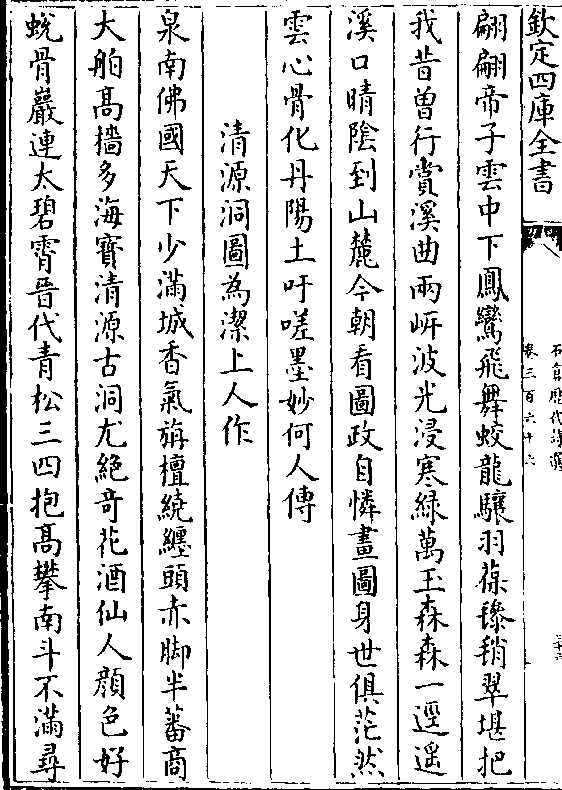 欽定四庫全書
石倉歷代詩選
卷三百六十六
翩翩帝子雲中下鳳鸞飛舞蛟龍驤羽葆毿毿翠堪把
我昔曾行賞溪曲兩岍波光浸寒綠萬玉森森一逕遙
溪口晴陰到山麓今朝看圖政自憐畫圖身世俱茫然
雲心骨化丹陽土吁嗟墨妙何人傳
清源洞圖為潔上人作
泉南佛國天下少滿城香氣旃檀繞纏頭赤脚半蕃商
大舶高檣多海寶清源古洞尤絶奇花酒仙人顔色好
蛻骨巖連太碧霄晉代青松三四抱高攀南斗不滿尋